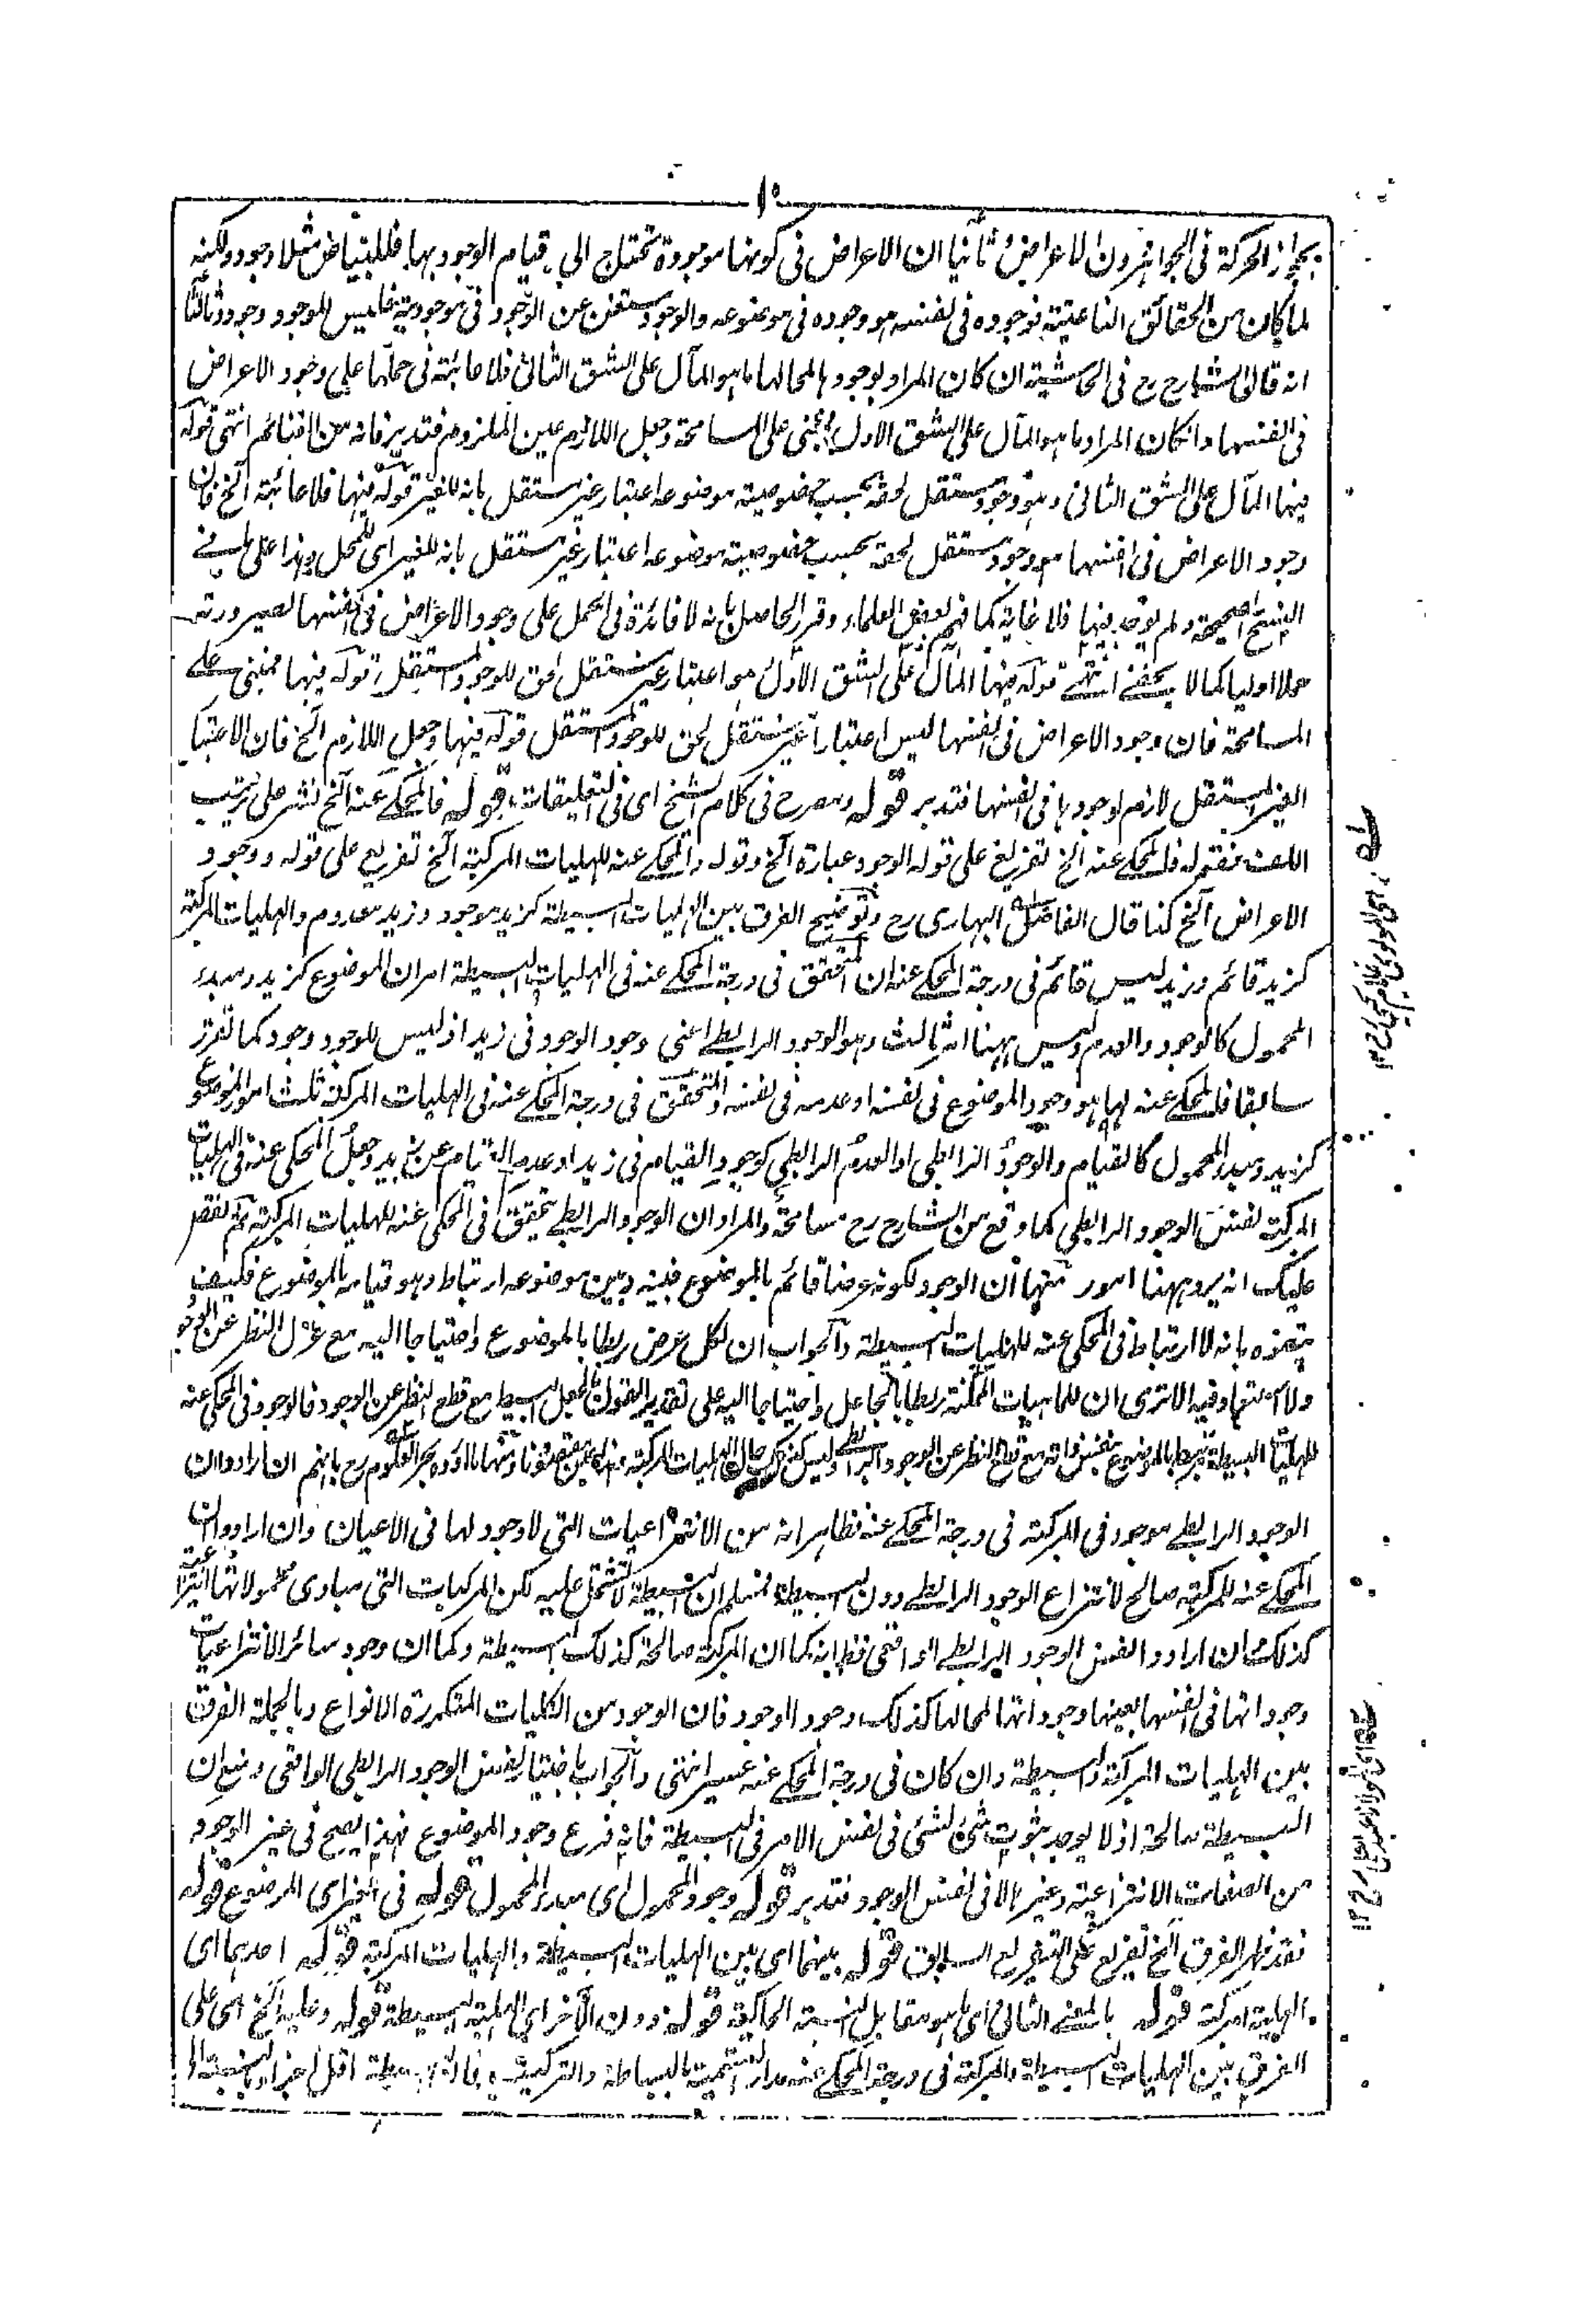 ١٠
بجواز الحركة فى الجواهر دون الاعراض ثانيا ان الاعراض فى كونها موجودة تحتاج الى قيام الوجود بها فللبياض مثلا وجود ولكنه
لما كان من الحقائق الناعتية فوجوده فى نفسه هو وجوده فى موضوعه والوجود مستغن عن الوجود فى موجوديته فليس للوجود وجود وثالثا
انه قال الشارح رح فى الحاشية ان كان المراد بوجودها لمحالها ما هو المآل على الشق الثانى فلا عائبة فى حملها على وجود الاعراض
فى انفسها وان كان المراد ما هو المآل على الشق الاول فمبنى على المسامحة وجعل اللازم عين الملزوم فتدبر فانه من الغنائم انتهى قوله
فيها المآل على الشق الثانى وهو وجود مستقل لحقه بحسب خصوصية موضوعه اعتبار غير مستقل بانه للغير قوله فيها فلا عائبة الخ فان
وجود الاعراض فى انفسها هو وجود مستقل لحقه بحسب خصوصية موضوعه اعتبار غير مستقل بانه للغير اى للمحل وهذا على ما فى
النسخ الصحيحة ولم يوجد فيها فلا غاية كما فهم بعض العلماء وقرر الحاصل بانه لا فائدة فى الحمل على وجود الاعراض فى انفسها لصيرورته
حملا اوليا كما لا يخفى انتهى قوله فيها المآل على الشق الاول هو اعتبار غير مستقل لحق للوجود المستقل قوله فيها فمبنى على
المسامحة فان وجود الاعراض فى انفسها ليس اعتبارا غير مستقل لحق للوجود المستقل قوله فيها وجعل اللازم الخ فان الاعتبار
الغير المستقل لازم لوجودها فى انفسها فتدبر قوله ومصرح فى كلام الشيخ اى فى التعليقات قوله فالمحكى عنه الخ نشر على ترتيب
اللف فقوله فالمحكى عنه الخ تفريع على قوله الوجود عبارة الخ وقوله والمحكى عنه للهليات المركبة الخ تفريع على قوله ووجود
الاعراض الخ كذا قال الفاضل البهارى رح وتوضيح الفرق بين الهليات البسيطة كزيد موجود وزيد معدوم والهليات المركبة
كزيد قائم وزيد ليس قائم فى درجة المحكى عنه ان المتحقق فى درجة المحكى عنه فى الهليات البسيطة امران الموضوع كزيد ومبدء
المحمول كالوجود والعدم وليس ههنا امر ثالث وهو الوجود الرابطى اعنى وجود الوجود فى زيد اذ ليس للوجود وجود كما تقرر
سابقا فالمحكى عنه لها هو وجود الموضوع فى نفسه او عدمه فى نفسه والمتحقق فى درجة المحكى عنه فى الهليات المركبة ثلث امور الموضوع
كزيد ومبدء المحمول كالقيام والوجود الرابطى او العدم الرابطى كوجود القيام فى زيد او عدم القيام عن زيد وجعل المحكى عنه فى الهليات
المركبة نفس الوجود الرابطى كما وقع من الشارح رح مسامحة والمراد ان الوجود الرابطى يتحقق فى المحكى عنه للهليات المركبة ثم
عليك انه يرد ههنا امور منها ان الوجود لكونه عرضا قائم بالموضوع فبينه وبين موضوعه ارتباط وهو قيامه بالموضوع فكيف
يتفوه بانه لا ارتباط فى المحكى عنه للهليات البسيطة والجواب ان لكل عرض ربطا بالموضوع واحتياجا اليه مع عزل النظر عن الوجود
ولا استبعاد فيه الا ترى ان للماهيات الممكنة ربطا بالجاعل واحتياجا اليه على تقدير القول بالجعل البسيط مع قطع النظر عن الوجود فالوجود فى المحكى عنه
للهليات البسيطة مرتبط بالموضوع بنفس ذاته مع قطع النظر عن الوجود الرابطى وليس كذلك حال الهليات المركبة ومنها ما اورده بحر العلوم رح بانهم ان ارادوا ان
الوجود الرابطى موجود فى المركبة فى درجة المحكى عنه فظاهر انه من الانتزاعيات التى لا وجود لها فى الاعيان وان ارادوا ان
المحكى عنه للمركبة صالح لانتزاع الوجود الرابطى دون البسيطة فمسلم ان البسيطة لا تشتمل عليه لكن المركبات التى مبادى محمولاتها انتزاعية
كذلك وان ارادوا نفس الوجود الرابطى الواقعى فظ انه كما ان المركبة صالحة كذلك البسيطة وكما ان وجود سائر الانتزاعيات
وجوداتها فى انفسها بعينها وجوداتها لمحالها كذلك وجود الوجود فان الوجود من الكليات المتكررة الانواع وبالجملة الفرق
بين الهليات المركبة والبسيطة وان كان فى درجة المحكى عنه عسير انتهى والجواب باختيار نفس الوجود الرابطى الواقعى ومنع ان
البسيطة صالحة اذ لا يوجد ثبوت شئ لشئ فى نفس الامر فى البسيطة فانه فرع وجود الموضوع فهذا يصح فى غير الوجود
من الصفات الانتزاعية وغيرها لا فى نفس الوجود فتدبر قوله وجود المحمول اى مبدء المحمول قوله فى الغير اى الموضوع قوله
فقد ظهر الفرق الخ تفريع على التفريع السابق قوله بينهما اى بين الهليات البسيطة والهليات المركبة قوله احدهما اى
الهلية المركبة قوله بالمعنى الثانى اى ما هو مقابل النسبة الحاكية قوله دون الآخر اى الهلية البسيطة قوله وعليه الخ اى على
الفرق بين الهليات البسيطة والمركبة فى درجة المحكى عنه مدار التسمية بالبساطة والتركيب فان البسيطة اقل اجزاء بالنسبة الى